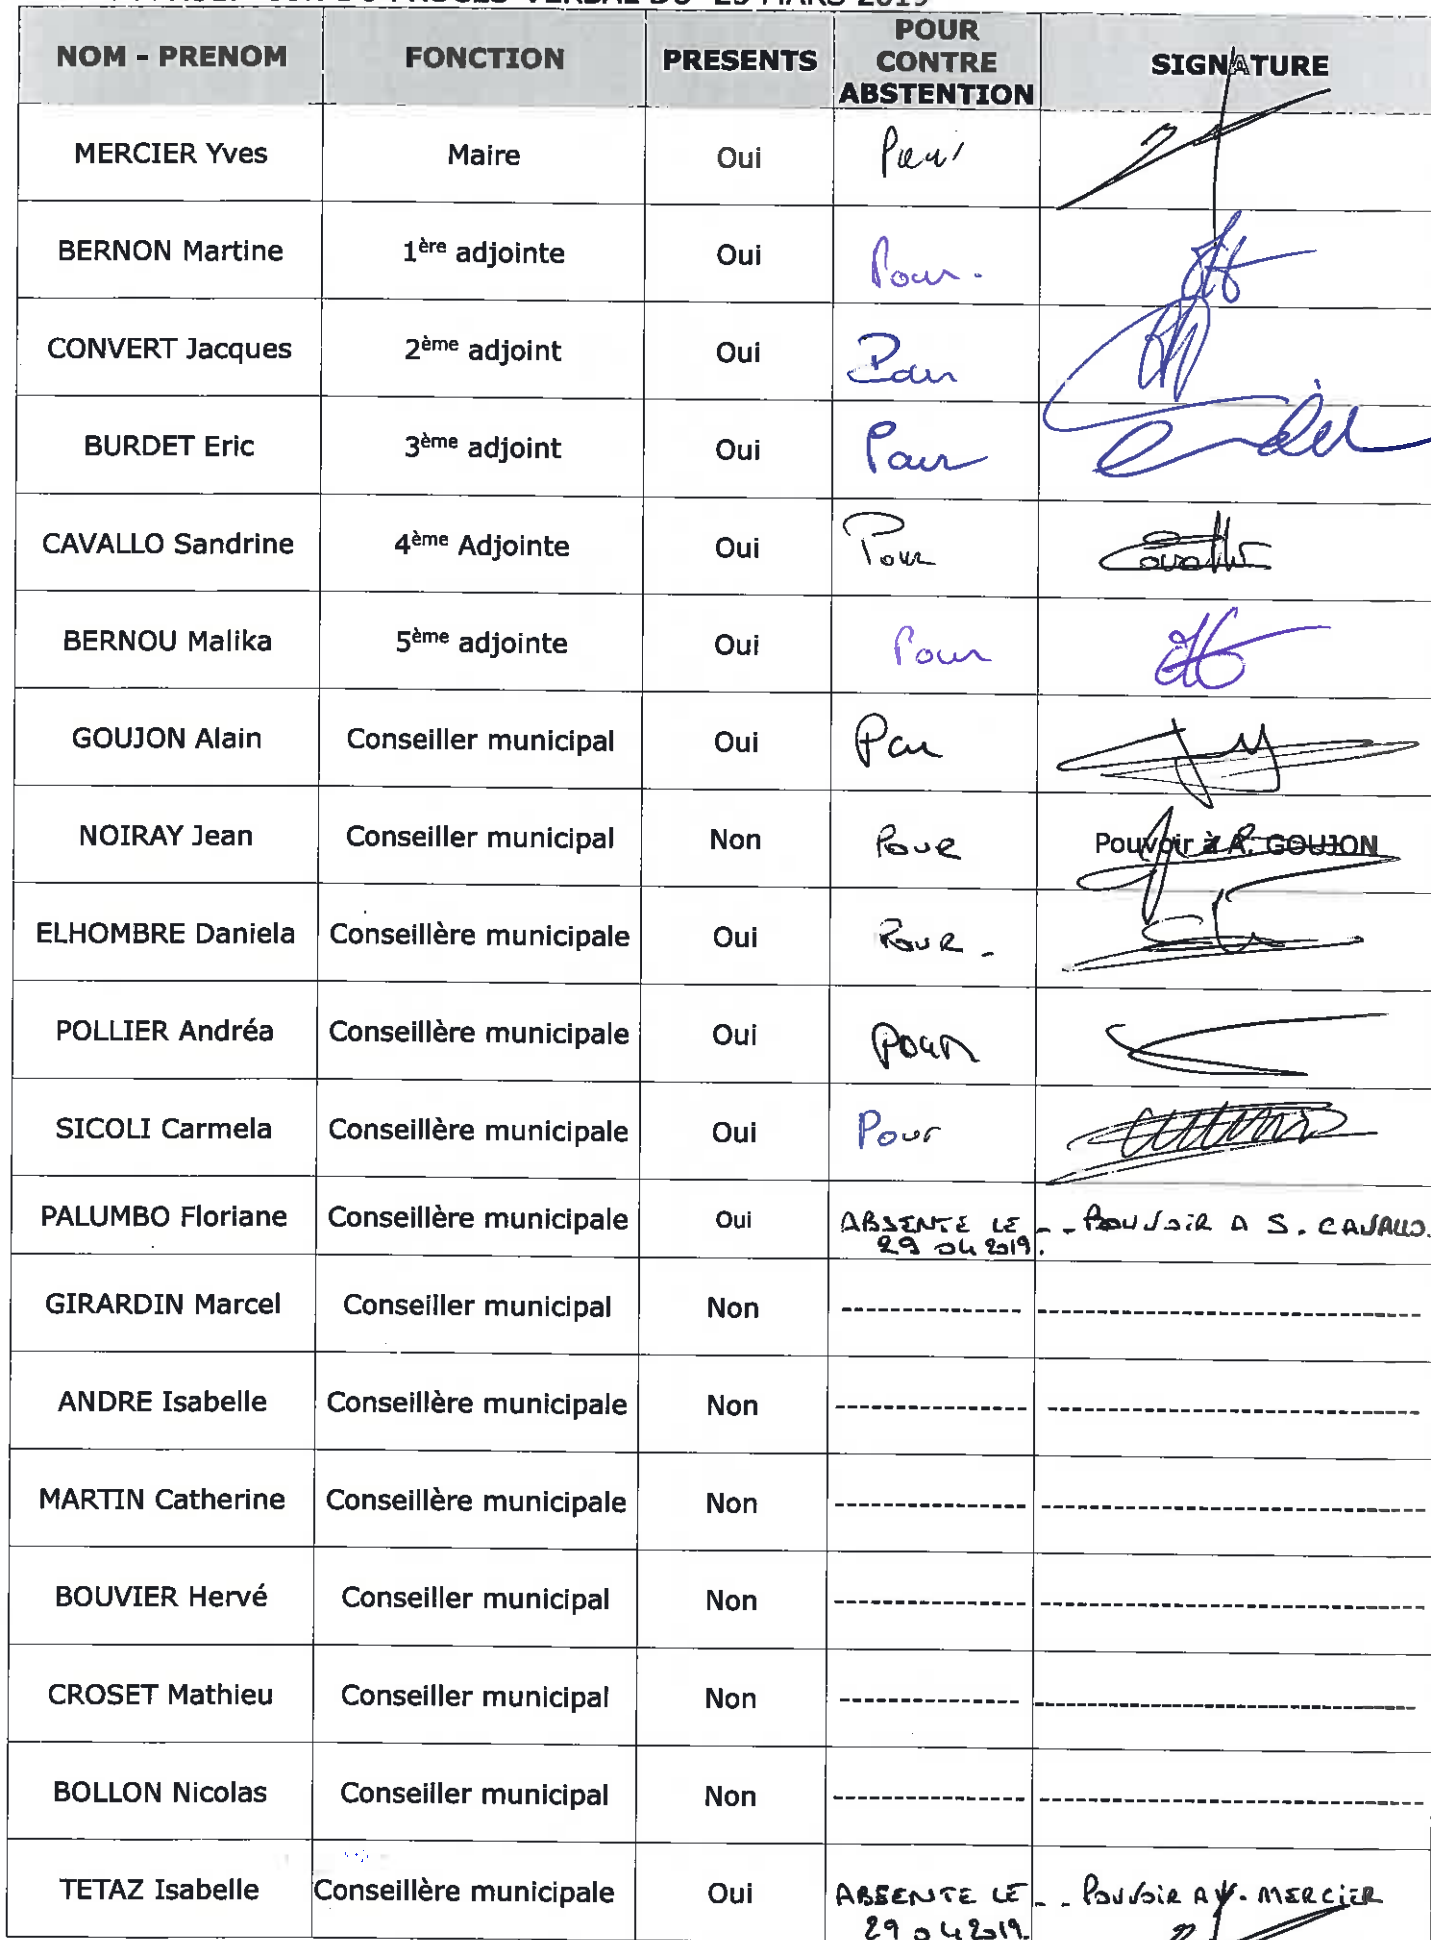 DU PROCES-VERBAL DU 25 MARS 2019
NOM - PRENOM FONCTION PRESENTS POUR CONTRE ABSTENTION SIGNATURE
MERCIER Yves Maire Oui Pour
BERNON Martine 1ère adjointe Oui Pour.
CONVERT Jacques 2ème adjoint Oui Pour
BURDET Eric 3ème adjoint Oui Pour
CAVALLO Sandrine 4ème Adjointe Oui Pour
BERNOU Malika 5ème adjointe Oui Pour
GOUJON Alain Conseiller municipal Oui Pour
NOIRAY Jean Conseiller municipal Non Pour Pouvoir à A. GOUJON
ELHOMBRE Daniela Conseillère municipale Oui POUR -
POLLIER Andréa Conseillère municipale Oui Pour
SICOLI Carmela Conseillère municipale Oui Pour
PALUMBO Floriane Conseillère municipale Oui ABSENTE LE -- POUVOIR A S. CAVALLO.
29 04 2019.
GIRARDIN Marcel Conseiller municipal Non
ANDRE Isabelle Conseillère municipale Non
MARTIN Catherine Conseillère municipale Non
BOUVIER Hervé Conseiller municipal Non
CROSET Mathieu Conseiller municipal Non
BOLLON Nicolas Conseiller municipal Non
TETAZ Isabelle Conseillère municipale Oui ABSENTE LE -- POUVOIR A Y. MERCIER
29 04 2019.